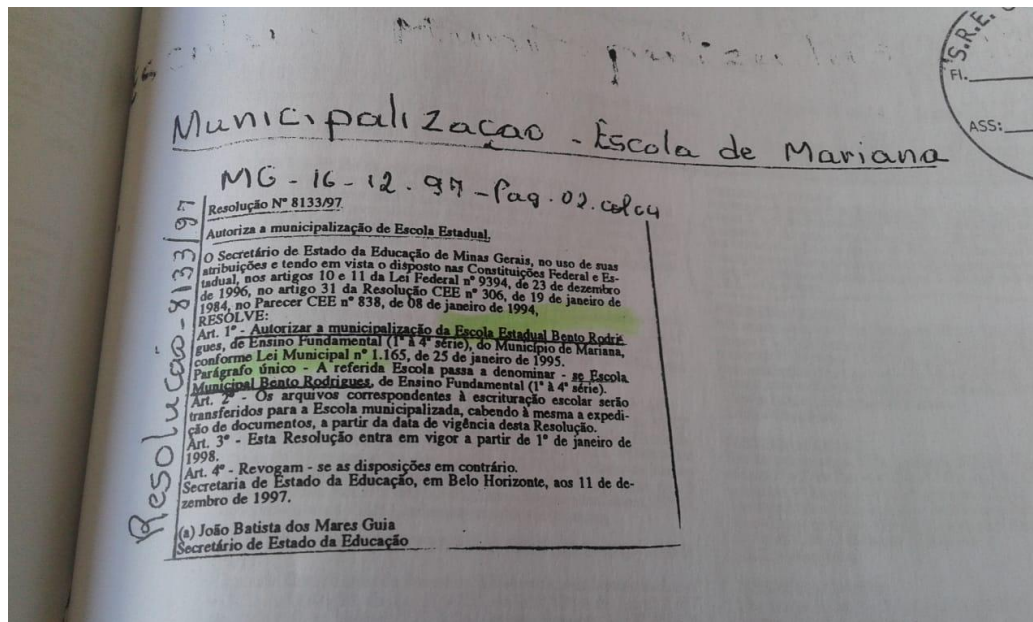 S.R.E.
Fl.
ASS:
Municipalização - Escola de Mariana
MG - 16 - 12 . 97 - Pag. 02. col 04
Resolução - 8133/97
Resolução Nº 8133/97
Autoriza a municipalização de Escola Estadual.
O Secretário de Estado da Educação de Minas Gerais, no uso de suas
atribuições e tendo em vista o disposto nas Constituições Federal e Es-
tadual, nos artigos 10 e 11 da Lei Federal nº 9394, de 23 de dezembro
de 1996, no artigo 31 da Resolução CEE nº 306, de 19 de janeiro de
1984, no Parecer CEE nº 838, de 08 de janeiro de 1994,
RESOLVE:
Art. 1º - Autorizar a municipalização da Escola Estadual Bento Rodri-
gues, de Ensino Fundamental (1ª à 4ª série), do Município de Mariana,
conforme Lei Municipal nº 1.165, de 25 de janeiro de 1995.
Parágrafo único - A referida Escola passa a denominar - se Escola
Municipal Bento Rodrigues, de Ensino Fundamental (1ª à 4ª série).
Art. 2º - Os arquivos correspondentes à escrituração escolar serão
transferidos para a Escola municipalizada, cabendo à mesma a expedi-
ção de documentos, a partir da data de vigência desta Resolução.
Art. 3º - Esta Resolução entra em vigor a partir de 1º de janeiro de
1998.
Art. 4º - Revogam - se as disposições em contrário.
Secretaria de Estado da Educação, em Belo Horizonte, aos 11 de de-
zembro de 1997.
(a) João Batista dos Mares Guia
Secretário de Estado da Educação